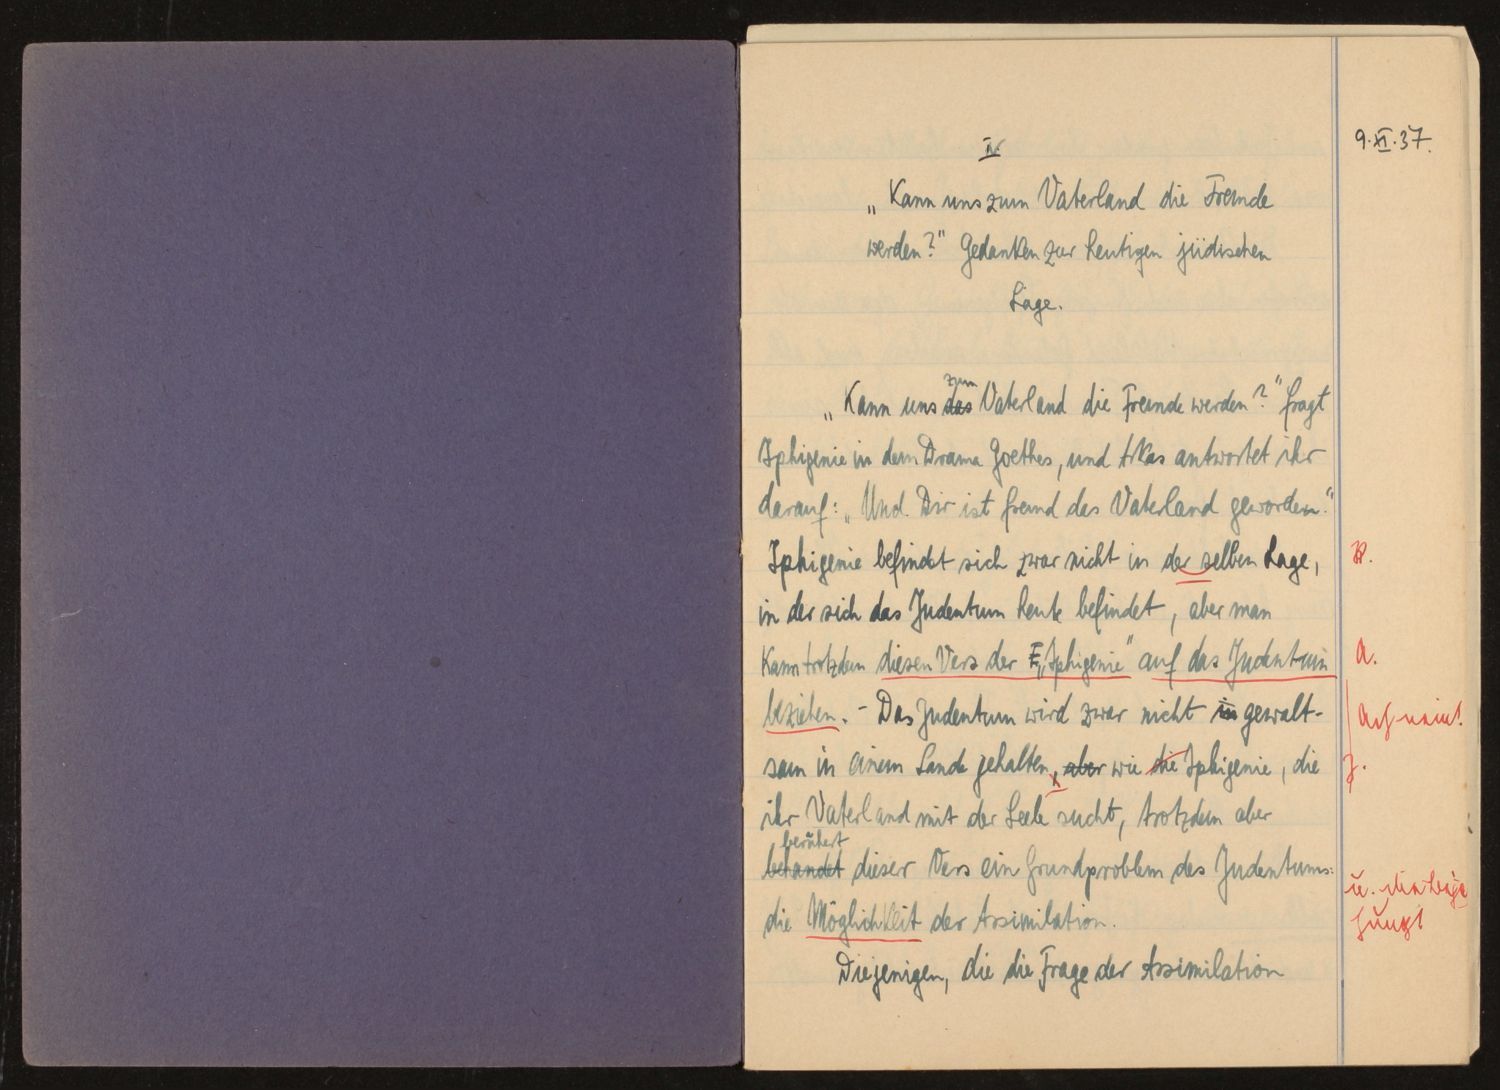 9.XI.37.
IV
„Kann uns zum Vaterland die Fremde
werden?" Gedanken zur heutigen jüdischen
Lage.
„Kann uns das zum Vaterland die Fremde werden?" fragt
Iphigenie in dem Drama Goethes, und Arkas antwortet ihr
darauf: „Und Dir ist fremd das Vaterland geworden."
Iphigenie befindet sich zwar nicht in der selben Lage,
R.
in der sich das Judentum heute befindet, aber man
kann trotzdem diesen Vers der E „Iphigenie" auf das Judentum
A.
beziehen. – Das Judentum wird zwar nicht in gewalt-
sam in einem Lande gehalten, aber wie die Iphigenie, die
Z.
ihr Vaterland mit der Seele sucht, trotzdem aber
berührt
behandet dieser Vers ein Grundproblem des Judentums:
die Möglichkeit der Assimilation.
Diejenigen, die die Frage der Assimilation